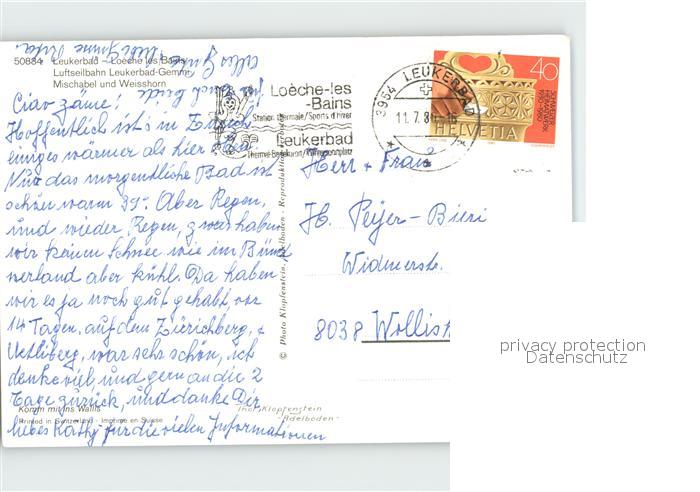 50884 Leukerbad - Loèche les Bains
Luftseilbahn Leukerbad-Gemmi
Mischabel und Weisshorn
Ciao zäme!
Hoffentlich ist's in Zürich
einiges wärmer als hier
Nur das morgentliche Bad ist
schön warm 39°. Aber Regen,
und wieder Regen, zwar haben
wir keinen Schnee wie im Bünd
nerland aber kühl. Da haben
wir es ja noch gut gehabt vor
14 Tagen, auf dem Zürichberg, +
Uetliberg, war sehr schön, ich
denke viel, und gern an die 2
Tage zurück, und danke Dir,
liebes Kathy für die vielen Informationen
alles Gute
Komm mit ins Wallis
Printed in Switzerland - Imprimé en Suisse
© Photo Klopfenstein, Adelboden - Reproduktion
Thor Klopfenstein
Adelboden
Loèche-les
-Bains
Station thermale/Sports d'hiver
Leukerbad
3954 LEUKERBAD
11.7.80
40
HELVETIA
Herr + Frau
H. Peijer-Bieri
Widmerstr.
8038 Wollis
privacy protection
Datenschutz